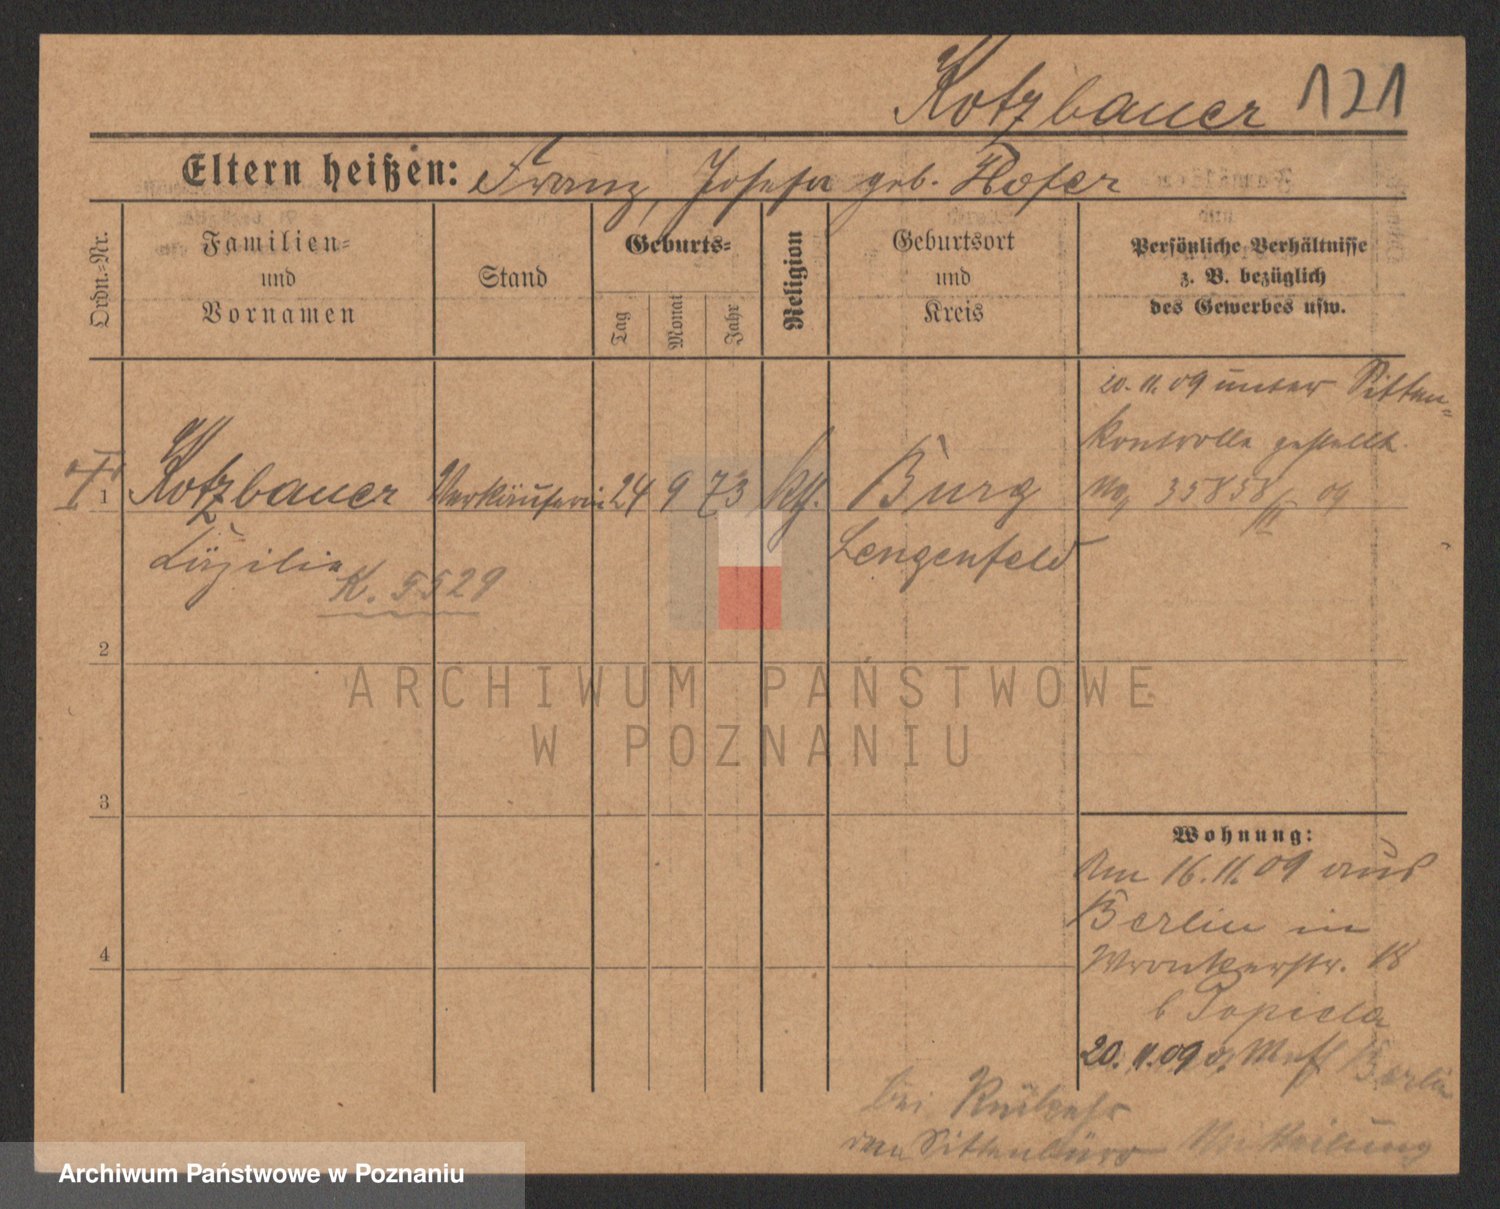 Kotzbauer 121
Eltern heißen: Franz, Josefa geb. Hofer
Ordn.-Nr.
Familien-
und
Vornamen
Stand
Geburts-
Tag
Monat
Jahr
Religion
Geburtsort
und
Kreis
Persönliche Verhältnisse
z. B. bezüglich
des Gewerbes usw.
1 Kotzbauer Verkäuferin 24 9 73 kth. Burg
Lengenfeld
Zäzilie
K. 5529
20. 11. 09 unter Sitten-
kontrolle gestellt.
35858/II 09
2
3
4
Wohnung:
Am 16.11.09 aus
Berlin in
Wronkerstr. 18
b
20. 11. 09 Berlin
bei Rückkehr
dem Sittenbüro Mitteilung
ARCHIWUM PAŃSTWOWE
W POZNANIU
Archiwum Państwowe w Poznaniu